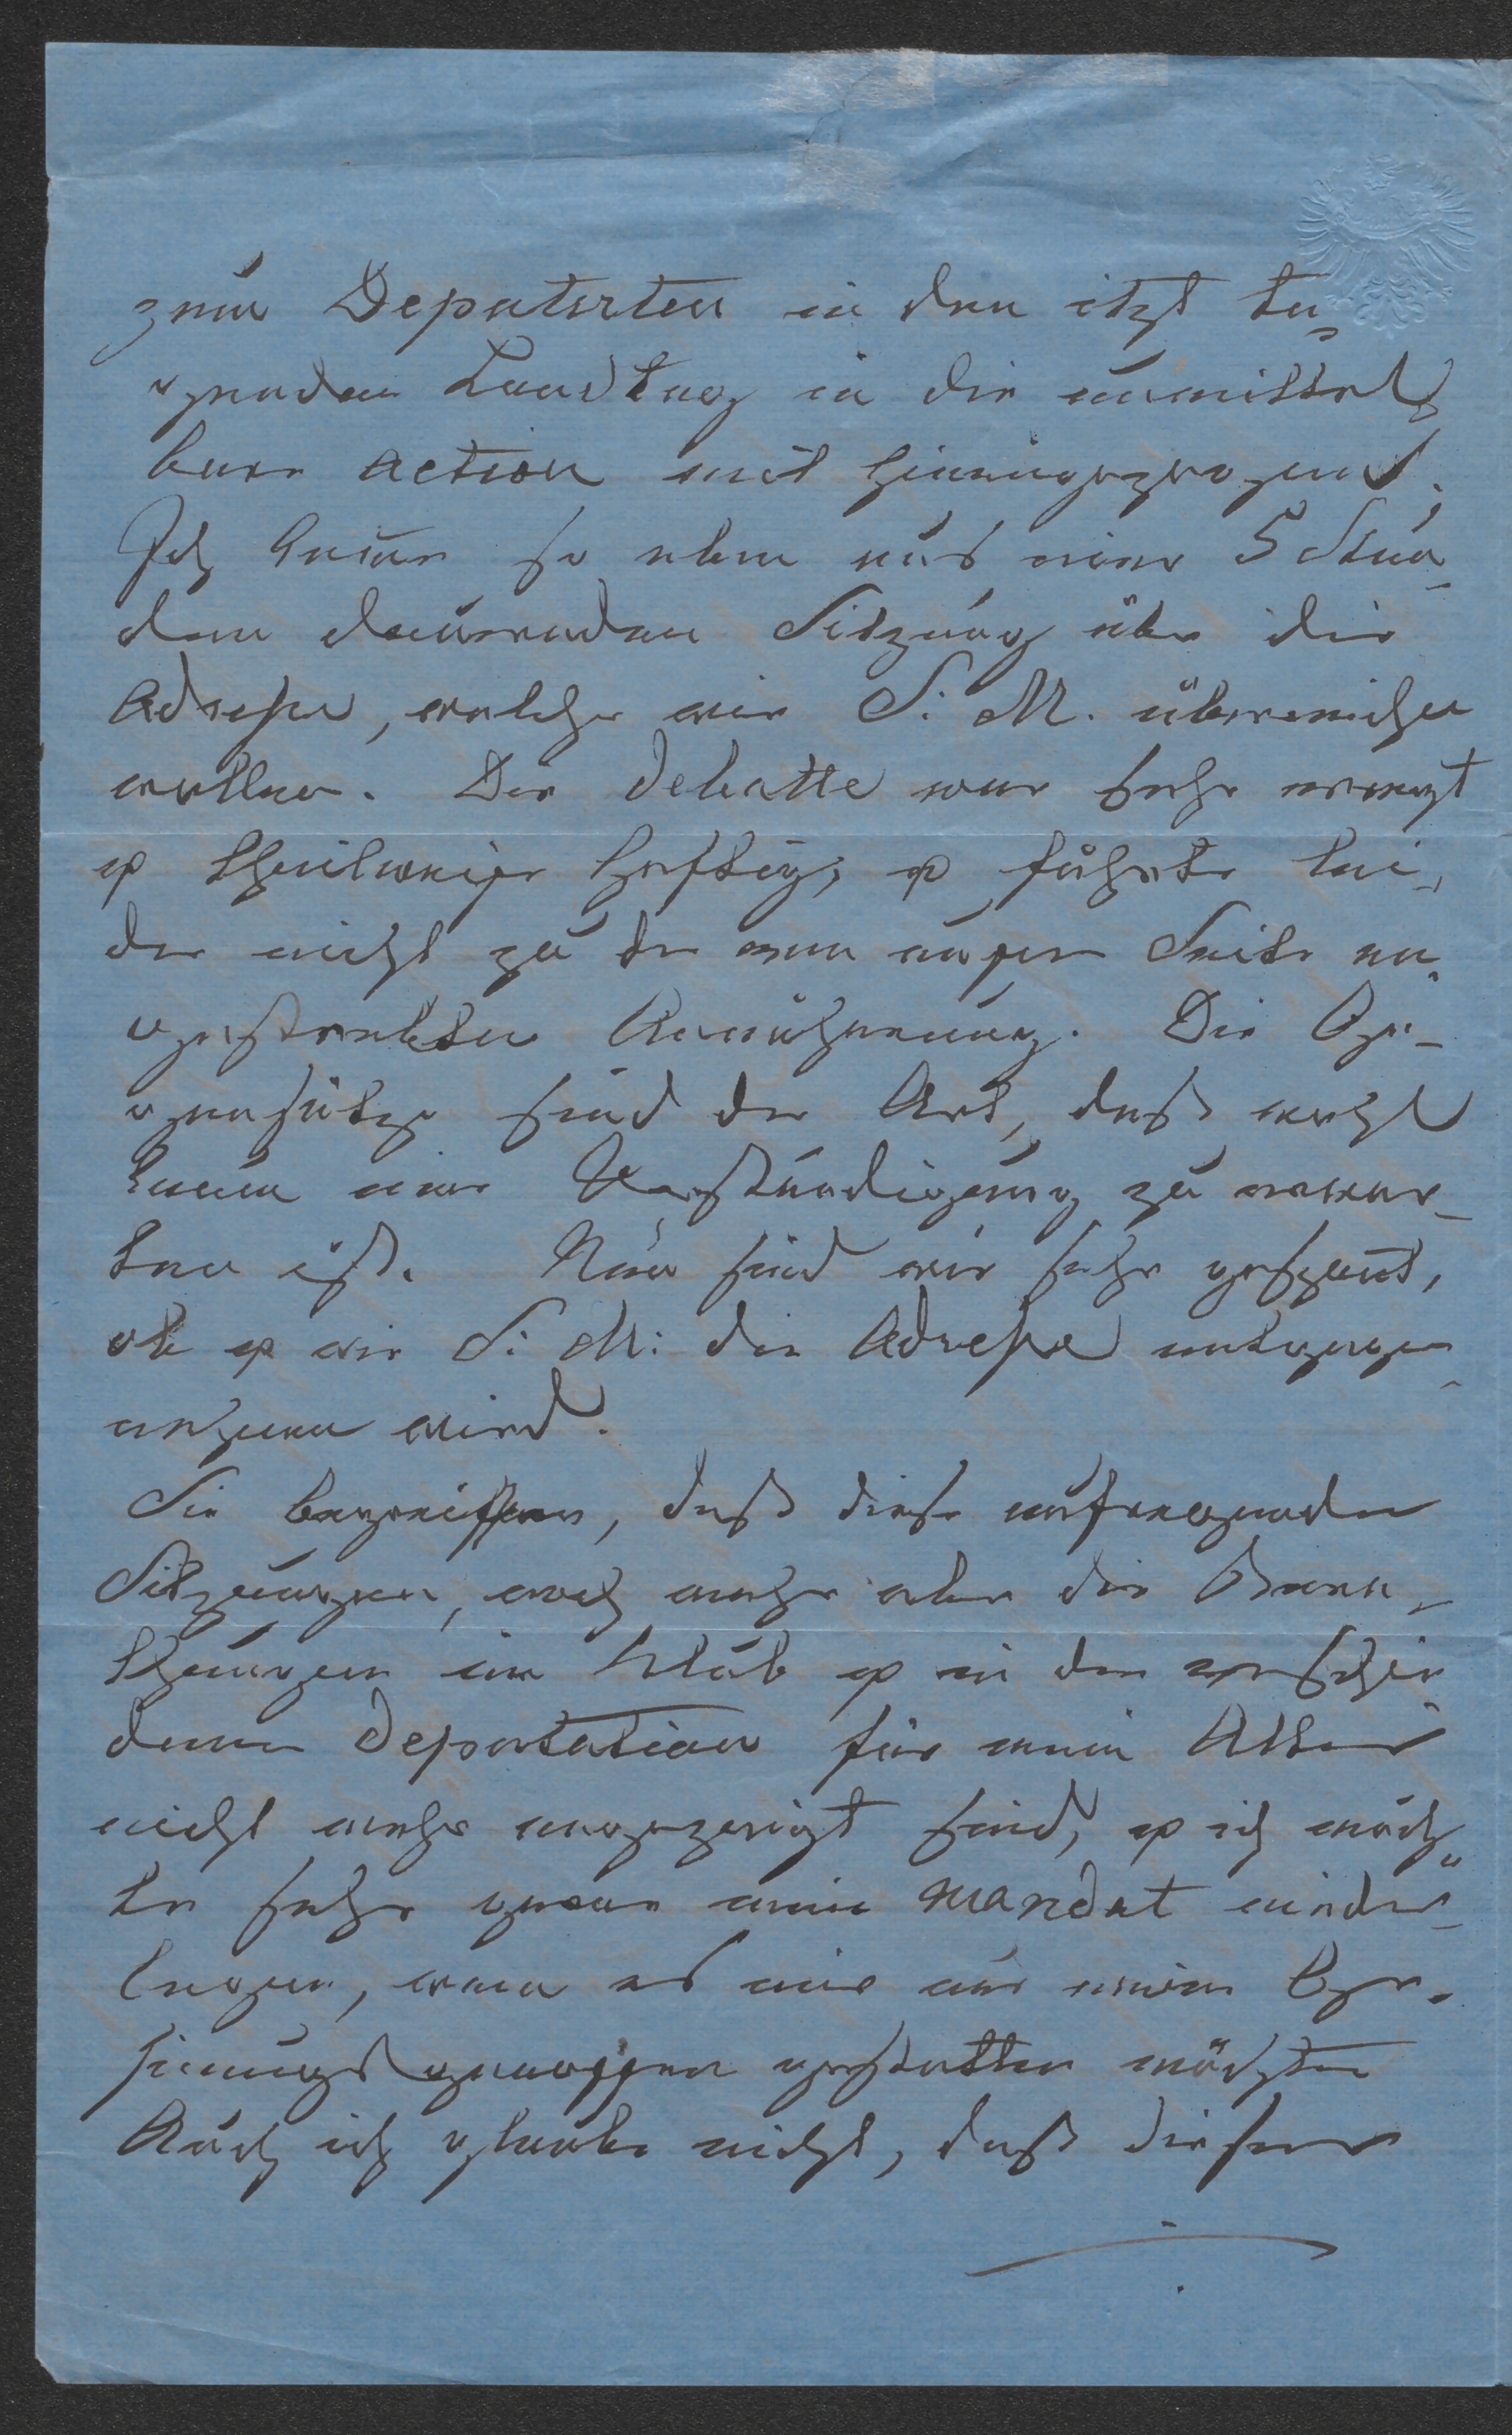 zum Deputirten in den itzt ta-
genden Landtag in die unmittel-
bare action mit hineingezogen.
Ich komme so eben aus einer 5 Stun-
den dauernden Sitzung über die
Adresse, welche wir S. M. überreichen
wollen. Die Debatte war sehr erregt
u theilweise heftig; u führte lei-
der nicht zu der von unsrer Seite an-
gestrebten Annäherung. Die Ge-
gensätze sind der Art, daß wohl
kaum eine Verständigung zu erwar-
ten ist. Nun sind wir sehr gespannt,
ob u wie S. M. die Adresse entgegen-
nehmen wird.
Sie begreiffen, daß diese aufregenden
Sitzungen, noch mehr aber die Bera-
thungen im Klub u in den verschie-
denen Deputationen für mein Alter
nicht mehr angezeigt sind, u ich möch-
te sehr gerne mein Mandat nieder-
legen, wenn es mir nur meine Ge-
sinnungsgenossen gestatten möchten
Auch ich glaube nicht, daß dieser